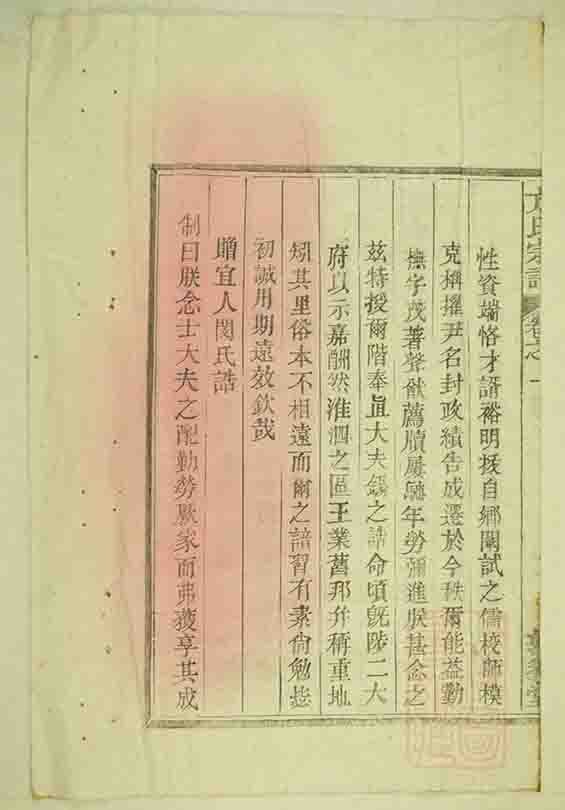 氏宗譜 卷之 一
性資端恪才諝裕明拔自鄉闈試之儒校師模
克稱擢尹名封政績告成遷於今秩爾能益勤
撫字茂著聲猷薦牘屢騰年勞彌進朕甚念之
茲特授爾階奉直大夫錫之誥命頃旣陟二大
府以示嘉酬然淮泗之區王業舊邦幷稱重地
矧其里俗本不相遠而爾之諳習有素尙勉
初誠用期遠效欽哉
贈宜人閔氏誥
制曰朕念士大夫之配勤勞厥家而弗獲享其成